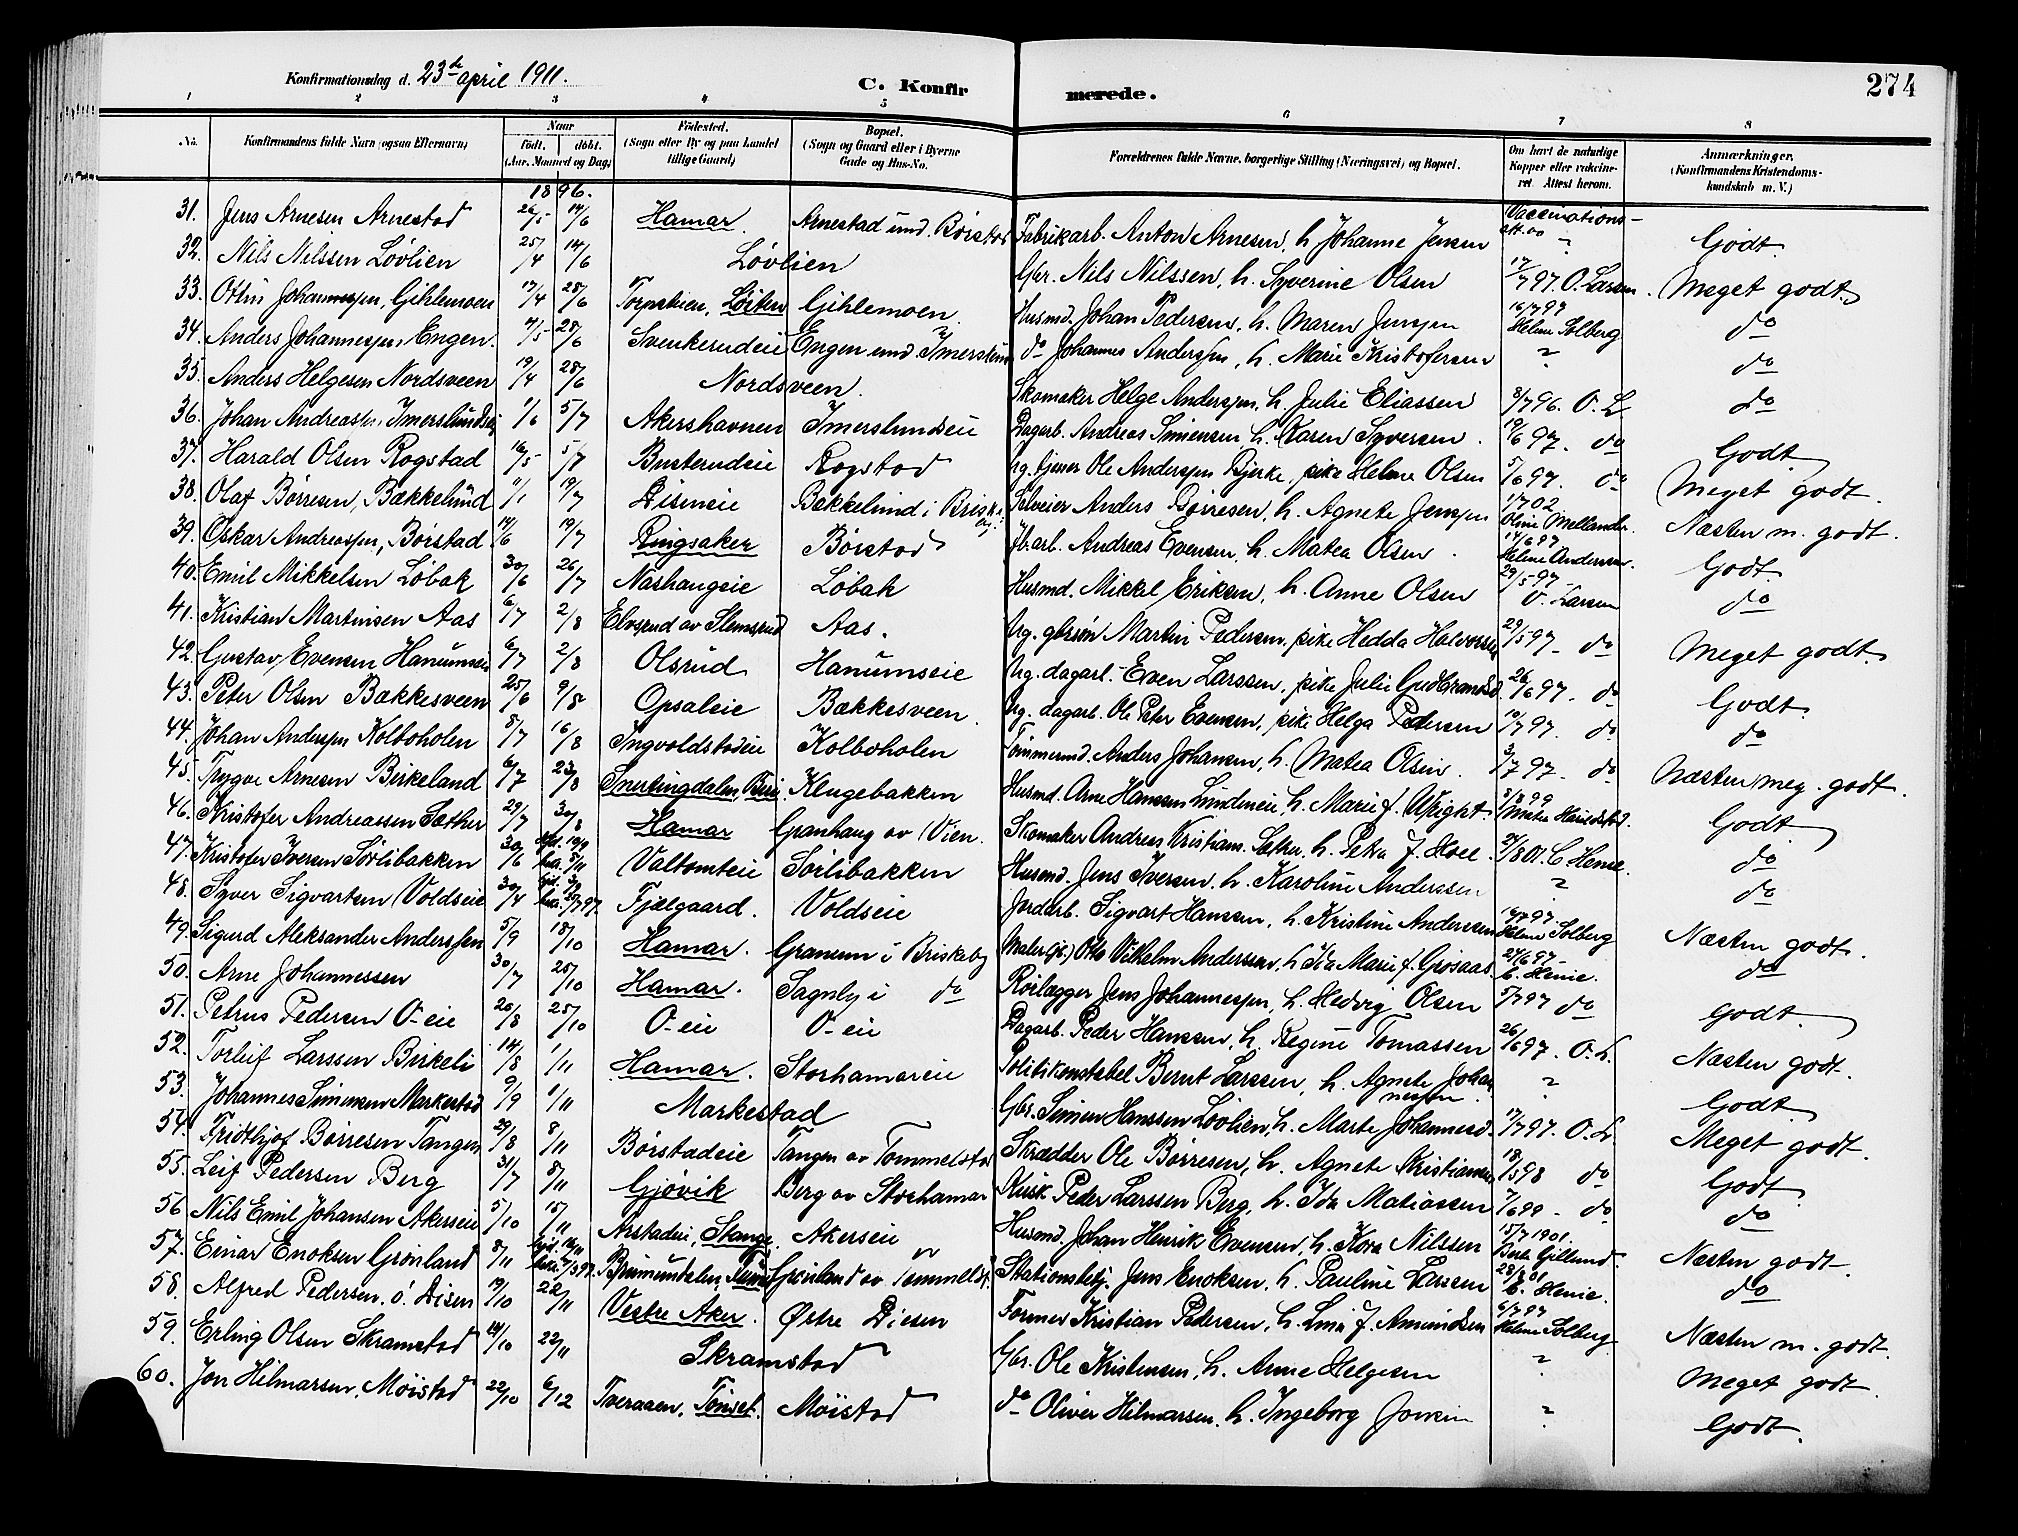 Konfirmationsdag d. 23de april 1911.
C. Konfirmerede.
274
1 2 3 4 5 6 7 8
No. Konfirmandens fulde Navn (ogsaa Efternavn) Naar født. døbt. (Aar, Maaned og Dag) Fødested. (Sogn eller By og paa Landet tillige Gaard) Bopæl. (Sogn og Gaard eller i Byerne Gade og Hus-No. Forældrenes fulde Navne, borgerlige Stilling (Næringsvei) og Bopæl. Om havt de naturlige Kopper eller vakcineret. Attest herom. Anmærkninger. (Konfirmandens Kristendomskundskab m. V.)
1896.
31. Jens Arnesen Arnestad 26/5 14/6 Hamar. Arnestad und. Børstad Fabrikarb. Anton Arnesen, h. Johanne Jensen Vaccinations- att. oo " Godt.
32. Nils Nilssen Løvlien 25/4 14/6 Løvlien Gbr. Nils Nilssen, h. Syverine Olsen 17/7 97. O. Larsen. Meget godt.
33. Johannssen, Gihlemoen 17/4 28/6 Løiten Gihlemoen. Husmd. Johan Pedersen, h. Maren Jenssen 16/7 97 Helene Solberg do
34. Anders Johannessen Engen. 4/5 28/6 Svenkerudeie Engen und Imerslund do Johannes Anderssen, h. Marie Kristofersen " do
35. Anders Helgesen Nordsveen 19/4 28/6 Nordsveen. Skomaker Helge Anderssen, h. Julie Eliassen 8/7 96. O. L do
36. Johan Andreassen Imerslundseie 1/6 5/7 Akershavnen Imerslundseie Dagarb. Andreas Simensen, h. Karen Syversen. 19/6 97. do Godt.
37. Harald Olsen Rogstad 16/5 5/7 Busterudeie Rogstad Ug. tjener Ole Anderssen Bjerke, pike Helene Olsen 5/6 97. do Meget godt.
38. Olaf Børresen, Bækkelund 11/1 19/7 Diseneie Bækkelund i Briskeby Selveier Anders Børresen, h. Agnete Jenssen 1/7 02 Oline Mellander. Næsten m. godt.
39. Oskar Andreassen, Børstad 14/6 19/7 Ringsaker Børstad Jb.arb. Andreas Evensen, h. Matea Olsen. 14/6 97 Helene Andersen. Godt.
40. Emil Mikkelsen Løbak 30/6 26/7 Nashaugeie Løbak Husmd. Mikkel Eriksen, h. Anne Olsen 29/5 97- O. Larsen do
41. Kristian Martinsen Aas 6/7 2/8 Elvsrud av Slemsrud Aas. Ug. gbrsøn Martin Pedersen, pike Hedda Halvorsen 29/5 97- do Meget godt.
42. Gustav Evensen Hanumseie 6/7 2/8 Olsrud Hanumseie Ug. dagarb. Even Larssen, pike Julie Gudbrandsd. 26/6 97- do Godt.
43. Peter Olsen Bakkesveen 25/6 9/8 Opsaleie Bækkesveen. Ug. dagarb. Ole Peter Evensen, pike Helga Pedersen 10/7 97. do do
44. Johan Anderssen Kolboholen 8/7 16/8 Ingvoldstadeie Kolboholen Tømmermd. Anders Johansen, h. Matea Olsen. 3/7 97. do Næsten meg. godt.
45. Trygve Arnesen Birkeland 6/7 23/8 Snertingdalen, Biri. Klugebakken Husmd. Arne Hanssen Lundeneie, h. Marie f. Wright. 3/8 99 Godt
46. Kristofer Andreassen Sæther 29/7 30/8 Hamar Granhaug av Vien. Skomaker Andreas Kristians. Sæther, h. Petra f. Hoel. 21/8 01. C Henie. do
47. Kristofer Iversen Sørlibakken 30/6 hjd. 19/9 bekr. 8/11 Valtomteie Sørlibakken Husmd. Jens Iversen, h. Karoline Anderssen " do
48. Syver Sigvartsen Voldseie 30/4 Fjælgaard. Voldseie Jordarb. Sigvart Hanssen, h. Kristine Anderssen 16/7 97. Helene Solberg Næsten godt.
49. Sigurd Aleksander Anderssen 5/9 18/10 Hamar. Granum i Briskeby Maler Otto Vilhelm Anderssen, h. Ida Marie f. Grosaas. 24/6 97- C. Henie. do
50. Arne Johannessen 30/7 25/10 Hamar. Sagnly i do Rørlægger Jens Johannessen, h. Hedvig Olsen 5/7 97 do Godt.
51. Petrus Pedersen O-eie 20/8 25/10 O-eie O-eie Dagarb. Peder Hanssen, h. Regine Tomassen 26/6 97. O. L. Næsten godt.
52. Torleif Larssen Birkeli 14/8 1/11 Hamar. Storhamareie Politikonstabel Bernt Larssen, h. Agnete Johannessen. " Godt
53. Johannes Simensen Markestad 9/9 1/11 Markestad Gbr. Simen Hanssen Løvlien, h. Marte Johannesd. 17/7 97. O. L. Meget godt.
54. Fridthjof Børresen Tangen 29/8 8/11 Børstadeie Tangen av Tommelstad Skrædder Ole Børresen, h. Agnete Kristiansen 18/5 98 do Godt
55. Leif Pedersen Berg 31/7 8/11 Gjøvik Berg av Storhamar Kusk Peder Larssen Berg, h. Ida Matiassen 7/6 99 - do do
56. Nils Emil Johansen Akerseie 5/10 15/11 Arstadeie, Stange. Akerseie Husmd. Johan Henrik Evensen, h. Kora Nilssen 15/7 1901. Berte Gillund. Næsten godt.
57. Einar Enoksen Grønland 8/11 Brumunddalen, Grønland av Tommelst. Stationsbetj. Jens Enoksen, h. Pauline Larssen 28/8 01 C. Henie. do
58. Alfred Pedersen, ø. Disen 19/10 22/11 Vestre Aker. Østre Diesen Former Kristian Pedersen, h. Lina f. Amundsen 6/7 97 Helene Solberg Næsten m. godt.
59. Erling Olsen Skramstad 14/10 22/11 Skramstad Gbr. Ole Kristensen, h. Anne Helgesen " Meget godt.
60. Jon Hilmarsen, Møistad 22/10 6/12 Tveraaen, Tønset. Møistad do Oliver Hilmarsen, h. Ingeborg " Godt.